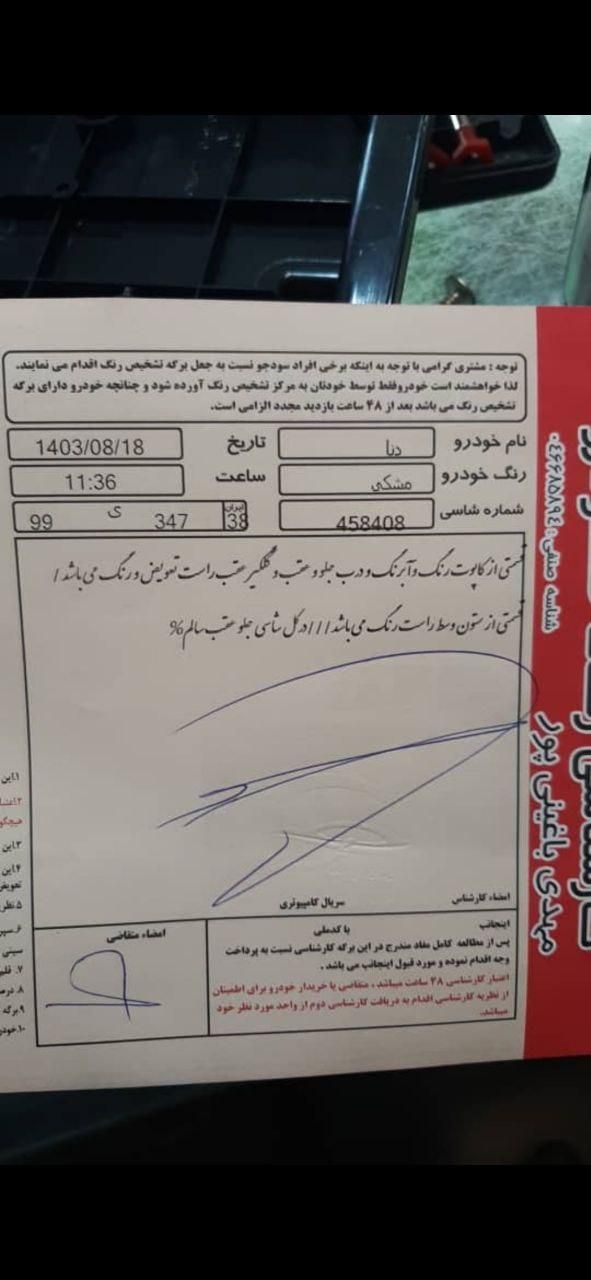 توجه : مشتری گرامی با توجه به اینکه برخی افراد سودجو نسبت به جعل برگه تشخیص رنگ اقدام می نمایند.
لذا خواهشمند است خودروفقط توسط خودتان به مرکز تشخیص رنگ آورده شود و چنانچه خودرو دارای برگه
تشخیص رنگ می باشد بعد از ۴۸ ساعت بازدید مجدد الزامی است.
نام خودرو دنا تاریخ 1403/08/18
رنگ خودرو مشکی ساعت 11:36
شماره شاسی 458408 ایران 38 347 ی 99
قسمتی از کاپوت رنگ و آبرنگ و درب جلو و عقب و گلگیر عقب راست تعویض و رنگ می باشد /
قسمتی از ستون وسط راست رنگ می باشد / / / در کل شاسی جلو عقب سالم %
امضاء کارشناس
سریال کامپیوتری
اینجانب با کدملی
پس از مطالعه کامل مفاد مندرج در این برگه کارشناسی نسبت به پرداخت
وجه اقدام نموده و مورد قبول اینجانب می باشد .
اعتبار کارشناسی ۴۸ ساعت میباشد ، متقاضی یا خریدار خودرو برای اطمینان
از نظریه کارشناسی اقدام به دریافت کارشناسی دوم از واحد مورد نظر خود
میباشد.
امضاء متقاضی
شناسه صنفی : ۰۴۶۶۸۵۸۹۴
کارشناسی
مهدی باغینی پور
۱.این
هیچگو
۳.این
۴.این
تعویض
۵.نظر
۶.سپر
سینی
۷. قلم
۸. درصد
۹.برگه
۱۰.خودر